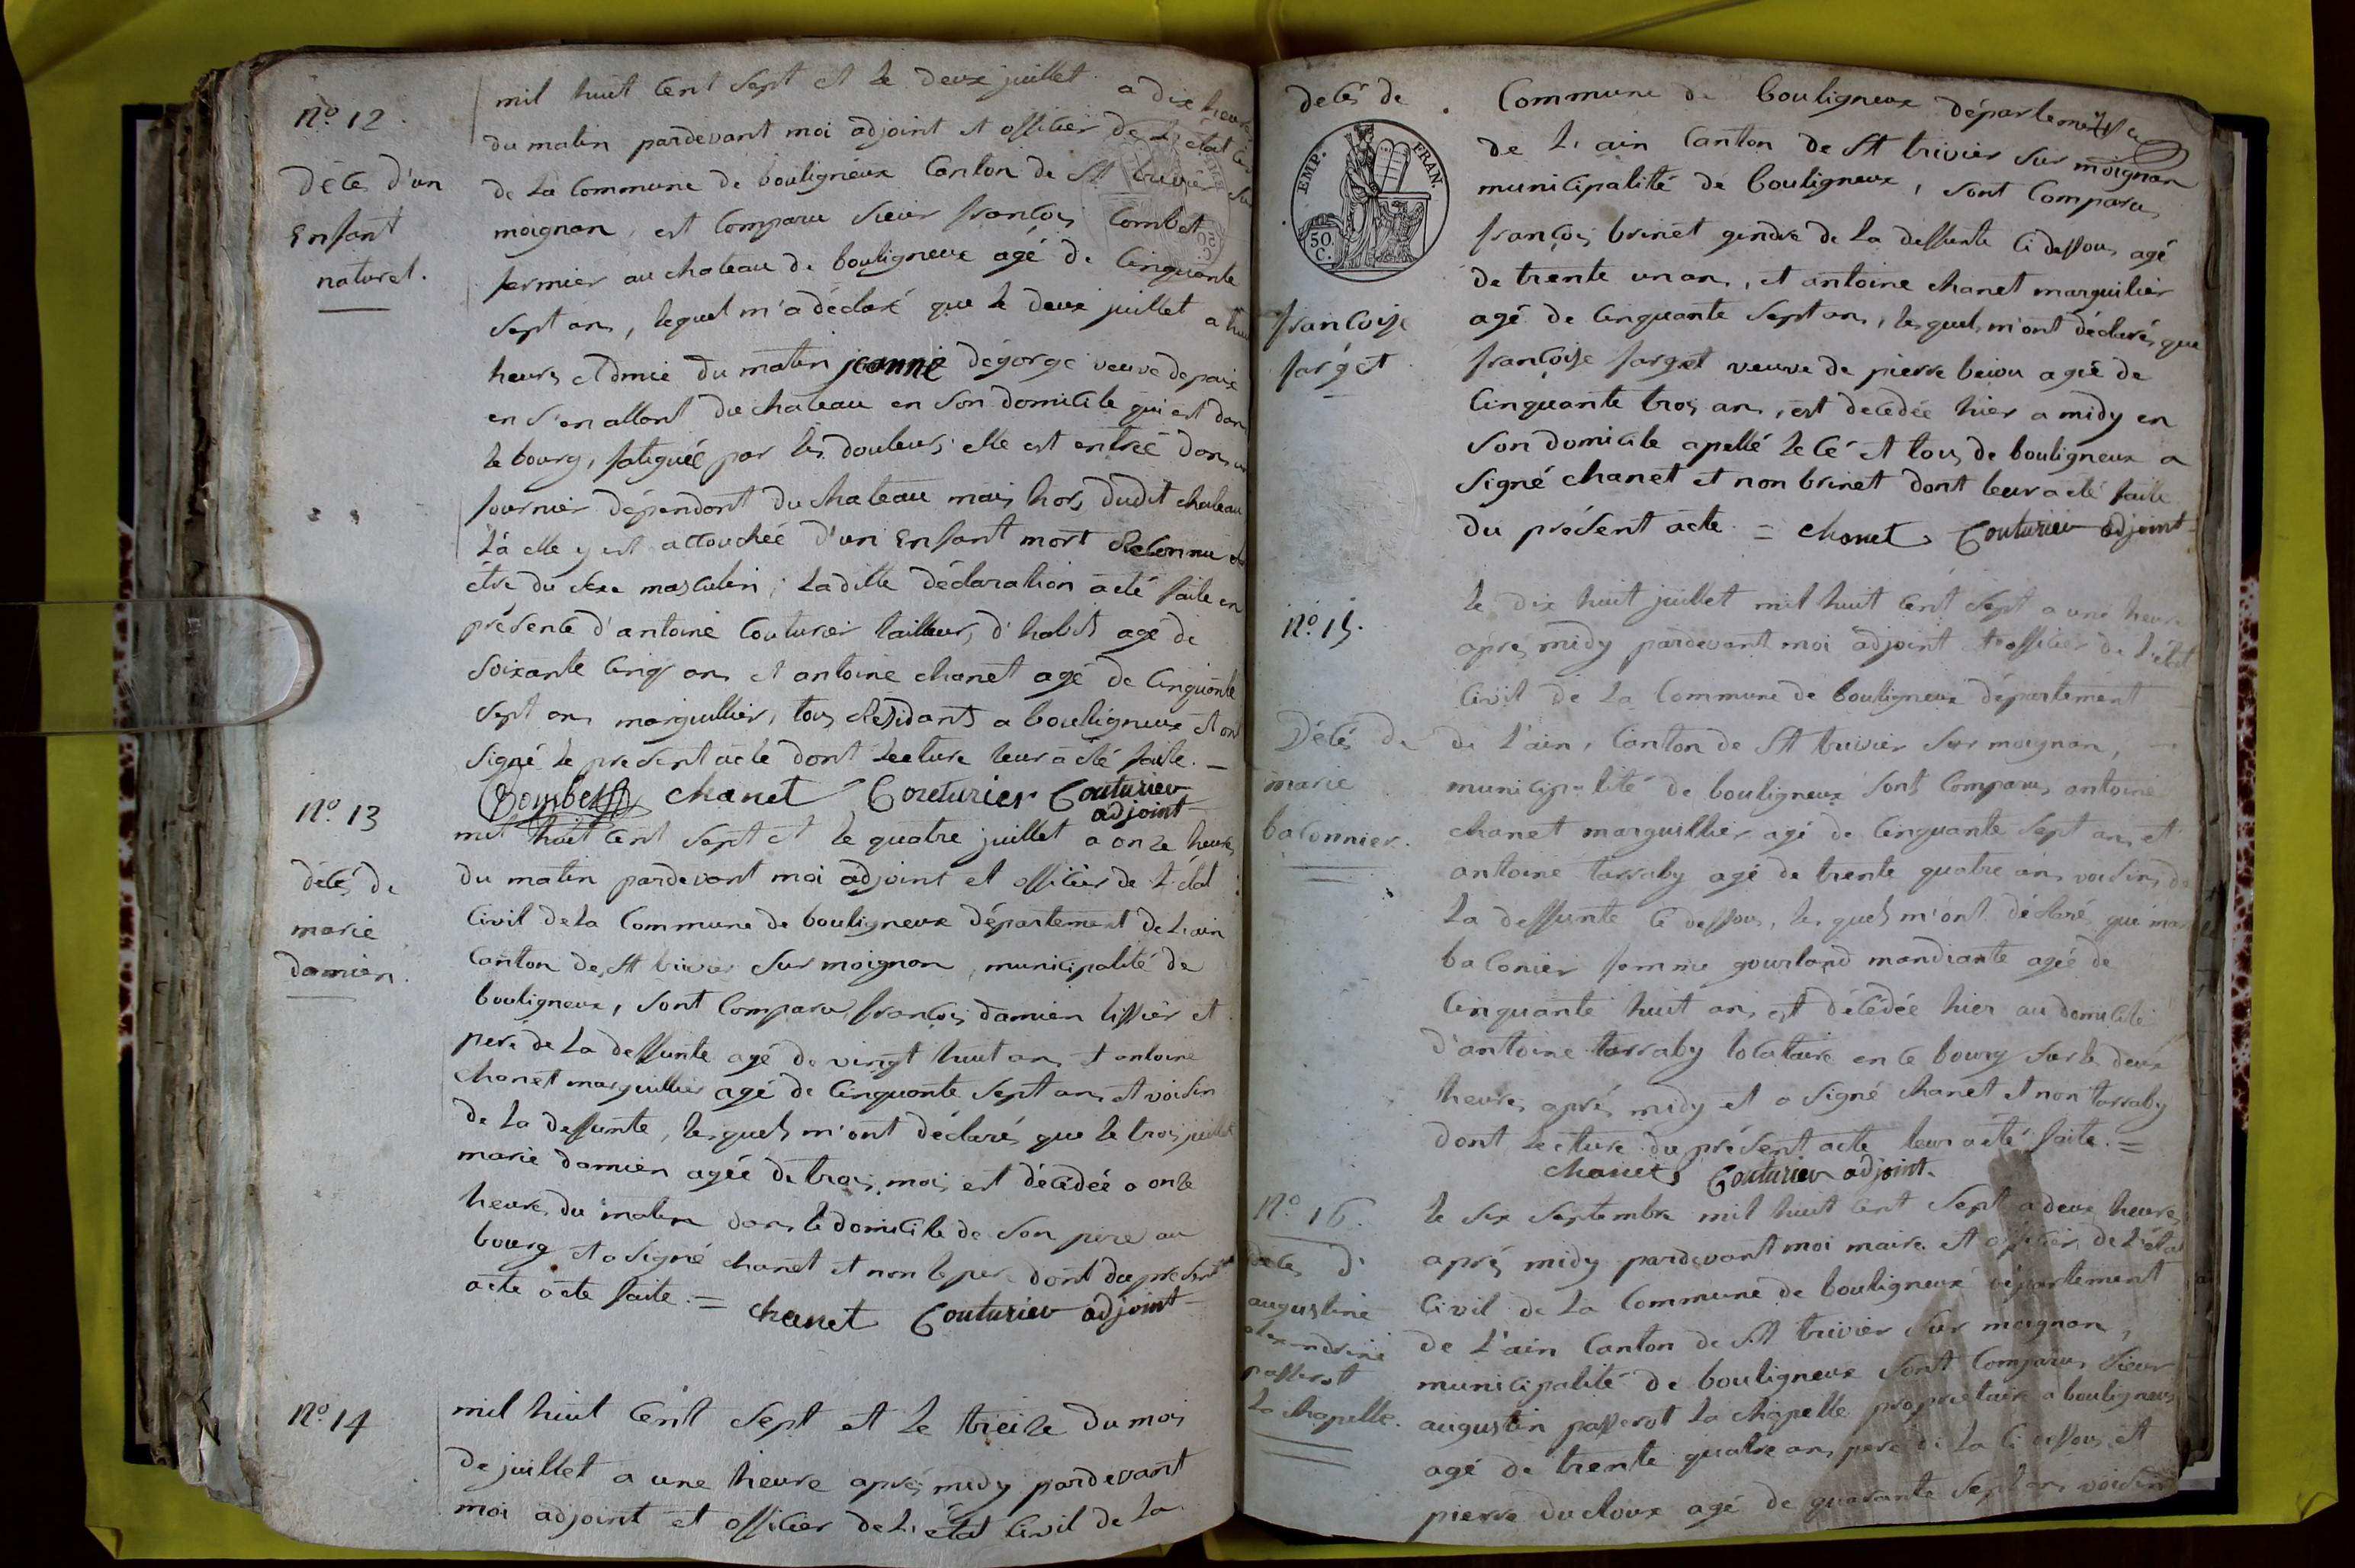 n.o 12.
Décés d'un
Enfant
naturel.
mil huit Cent Sept et le deux juillet a dix heures
du matin pardevant moi adjoint et officier de L'état
de La Commune de bouligneux Canton de St trivier Sur
moignan, est Comparu Sieur françois Combet
fermier au chateau de bouligneux agé de Cinquante
Sept ans, lequel m'a déclaré que le deux juillet a huit
heures et dmie du matin jeanne dégorge veuve depaix
en S'en allant du chateau en Son domicile qui est dans
le bourg, fatiguée par les douleurs; elle est entrée dans un
fournier dépendant du chateau mais hors dudit chateau
La elle y est accouchée d'un Enfant mort Reconnu
étre du Sexe masculin; Laditte déclaration a été faite en
présence d'antoine Couturier tailleur, d'habits agé de
Soixante Cinq ans et antoine chanet agé de Cinquante
Sept ans marguillier, tous Résidants a bouligneux et ont
Signé le présent acte dont Lecture leur a été faite. –
Combet chanet Couturier Couturier
adjoint
n.o 13
décés de
marie
damien.
mil huit Cent Sept et le quatre juillet a onze heures
du matin pardevant moi adjoint et officier de L'état
Civil de La Commune de bouligneux département de L'ain
Canton de St trivier Sur moignan, municipalité de
bouligneux, Sont Comparu françois damien tissier et
pere de La deffunte agé de vingt huit ans et antoine
chanet marguillier agé de Cinquante Sept ans et voisin
de La deffunte, lesquels m'ont déclarés que le trois juillet
marie damien agée de trois mois est décédée a onze
heures du matin dans le domicile de Son pere au
bourg et a Signé chanet et non le pere dont du présent
acte a été faite. = chanet Couturier adjoint
n.o 14
mil huit Cent Sept et le treize du mois
de juillet a une heure aprés midy pardevant
moi adjoint et officier de L'état Civil de La
décés de
EMP. FRAN.
50. C.
françoise
farget
Commune de bouligneux département
de L'ain Canton de St trivier Sur moignan
municipalité de bouligneux, Sont Comparu,
françois brinet gendre de La deffunte Ci dessous agé
de trente un ans, et antoine chanet marguilier
agé de Cinquante Sept ans, lesquels m'ont déclarés que
françoise farget veuve de pierre agée de
Cinquante trois ans, est decedée hier a midy en
Son domicile apellé le Cé et tous de bouligneux a
Signé chanet et non brinet dont leur a été faite
du présent acte = chanet Couturier adjoint
n.o 15.
Décés de
marie
baConnier.
le dix huit juillet mil huit Cent Sept a une heure
aprés midy pardevant moi adjoint et officier de L'état
Civil de La Commune de bouligneux département
de L'ain, Canton de St trivier Sur moignan,
municipalité de bouligneux Sont Comparus antoine
chanet marguillier agé de Cinquante Sept ans et
antoine tarraby agé de trente quatre ans voisins de
La deffunte Ci dessous, les quels m'ont déclaré que
baConier femme gourland mandiante agée de
Cinquante huit ans est décédée hier au domicile
d'antoine tarraby loCataire en Ce bourg Sur le deux
heures aprés midy et a Signé chanet et non tarraby
dont Lecture du présent acte leur a été faite. =
chanet Couturier adjoint.
n.o 16.
décés d'
augustine
alexandrine
passerat
La chapelle.
le Six Septembre mil huit Cent Sept a deux heures
aprés midy pardevant moi maire et officier de L'état
Civil de La Commune de bouligneux département
de L'ain Canton de St trivier Sur moignan,
municipalité de bouligneux Sont Comparus Sieur
augustin passerat La chapelle propriétaire a bouligneux
agé de trente quatre ans pere de La Ci dessous et
pierre ducloux agé de quarante Sept ans voisin